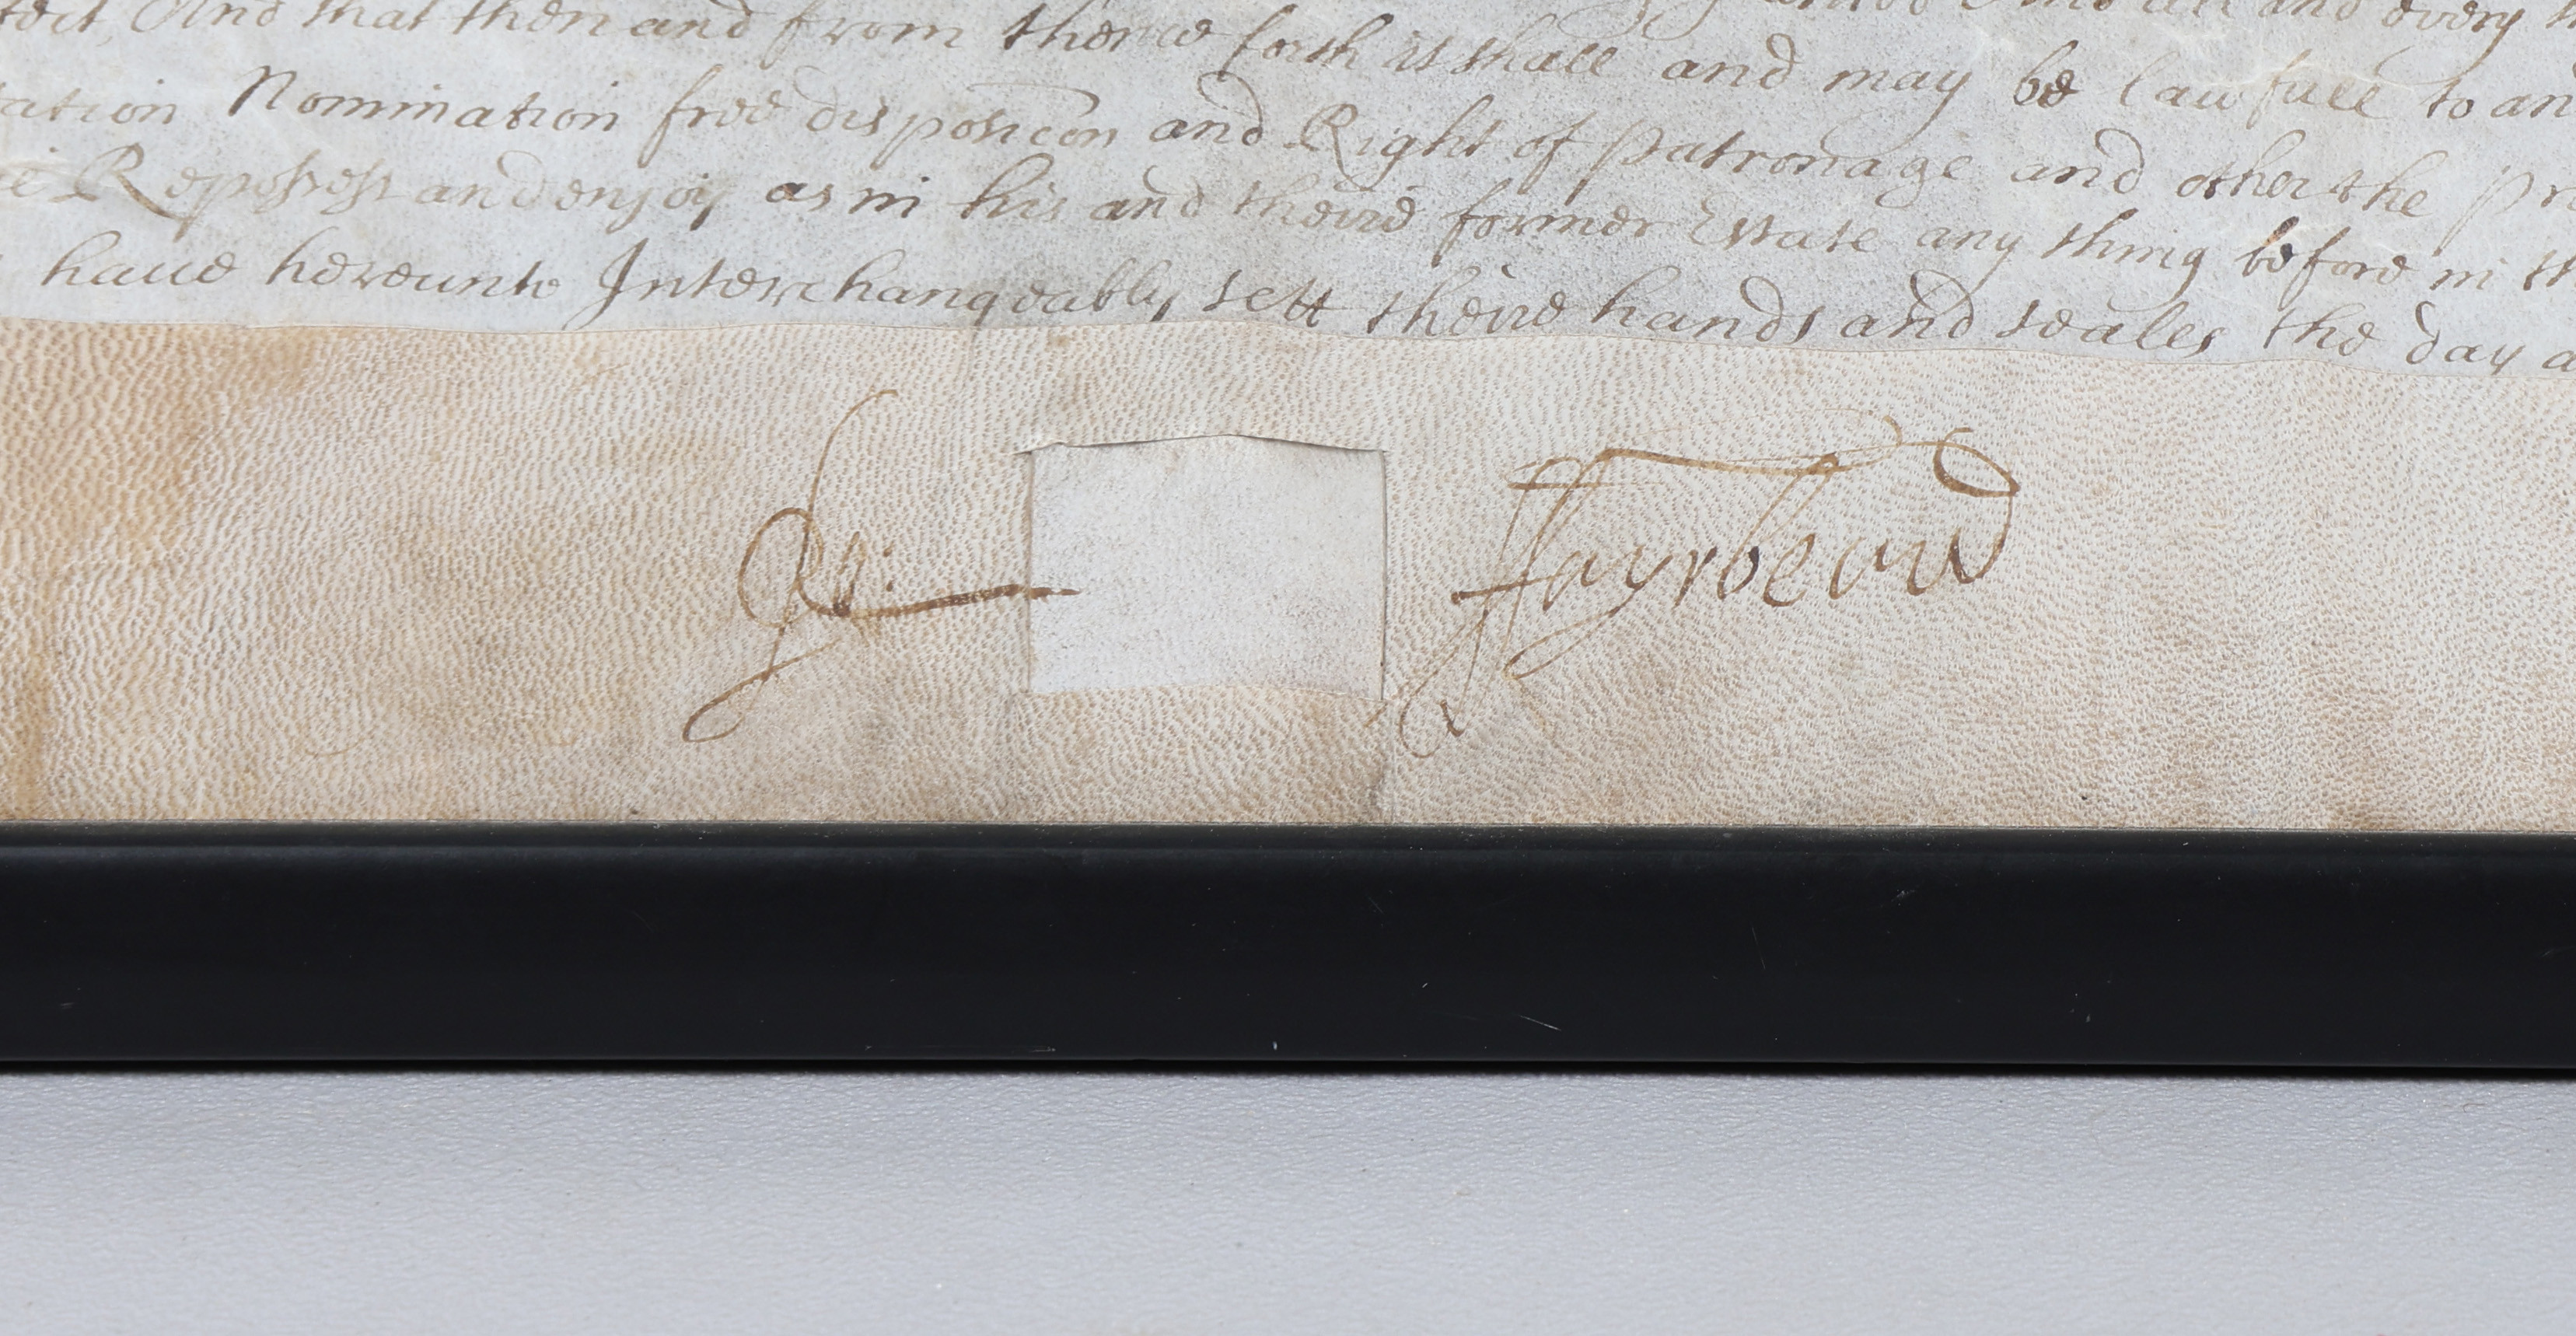 And that then and from thence forth it shall and may be lawfull to an
ation Nomination free disposicon and Right of patronage and other the pr
Repossess and enjoy as in his and theire former Estate any thing before in th
have hereunto Interchangeably sett theire hands and seales the day a
ffayrbeard